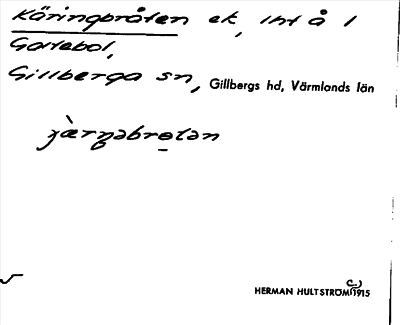 Käringbråten ek, int å 1
Gattebol,
Gillberga sn, Gillbergs hd, Värmlands län
HERMAN HULTSTRÖM (C.) 1915